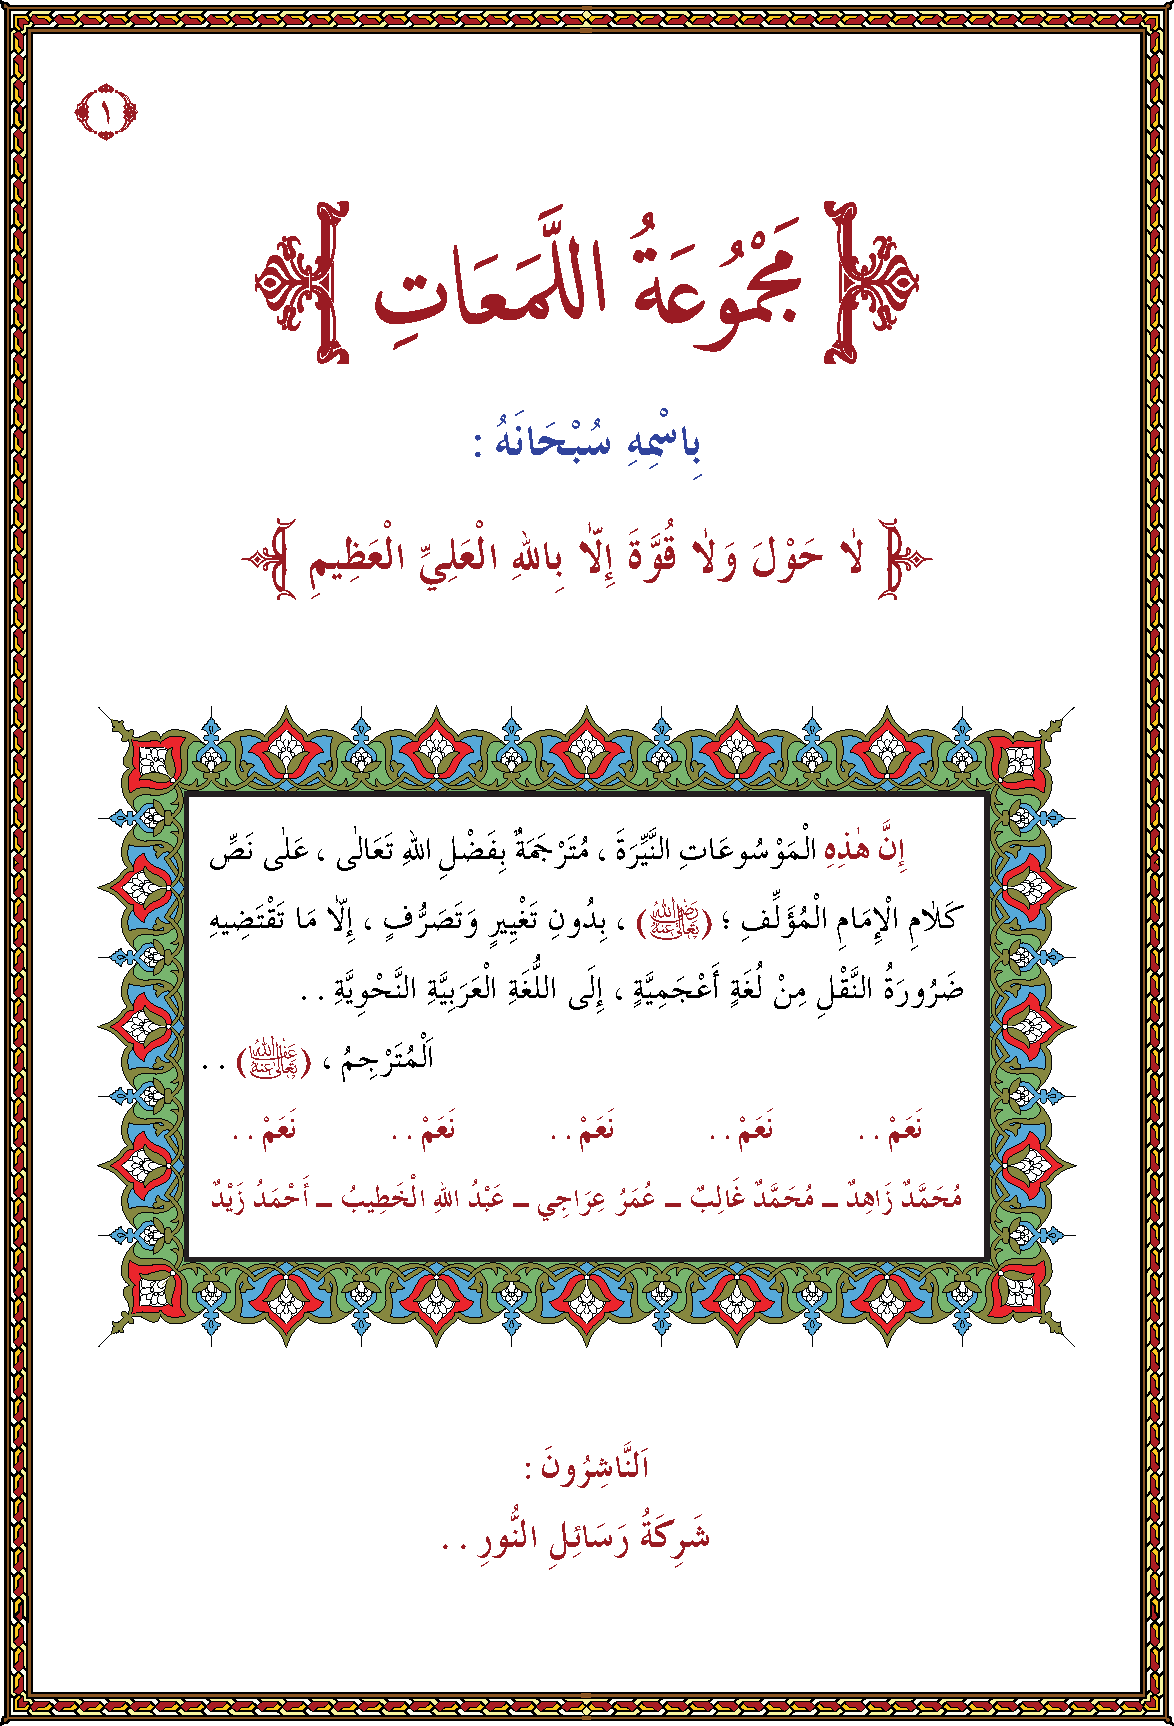 ١
مَجْمُوعَةُ اللَّمَعَاتِ
بِاسْمِهِ سُبْحَانَهُ :
لٰا حَوْلَ وَلٰا قُوَّةَ إِلّٰا بِاللهِ الْعَلِيِّ الْعَظِيمِ
إِنَّ هٰذِهِ الْمَوْسُوعَاتِ النَّيِّرَةَ ، مُتَرْجَمَةٌ بِفَضْلِ اللهِ تَعَالٰى ، عَلٰى نَصِّ
كَلٰامِ الْإِمَامِ الْمُؤَلِّفِ ؛ (رَضِيَ اللهُ تَعَالٰى عَنْهُ) ، بِدُونِ تَغْيِيرٍ وَتَصَرُّفٍ ، إِلّٰا مَا تَقْتَضِيهِ
ضَرُورَةُ النَّقْلِ مِنْ لُغَةٍ أَعْجَمِيَّةٍ ، إِلَى اللُّغَةِ الْعَرَبِيَّةِ النَّحْوِيَّةِ . .
اَلْمُتَرْجِمُ ، (عَفَا اللهُ تَعَالٰى عَنْهُ) . .
نَعَمْ . . نَعَمْ . . نَعَمْ . . نَعَمْ . . نَعَمْ . .
مُحَمَّدٌ زَاهِدٌ ــ مُحَمَّدٌ غَالِبٌ ــ عُمَرُ عِرَاجِي ــ عَبْدُ اللهِ الْخَطِيبُ ــ أَحْمَدُ زَيْدٌ
اَلنَّاشِرُونَ :
شَرِكَةُ رَسَائِلِ النُّورِ . .